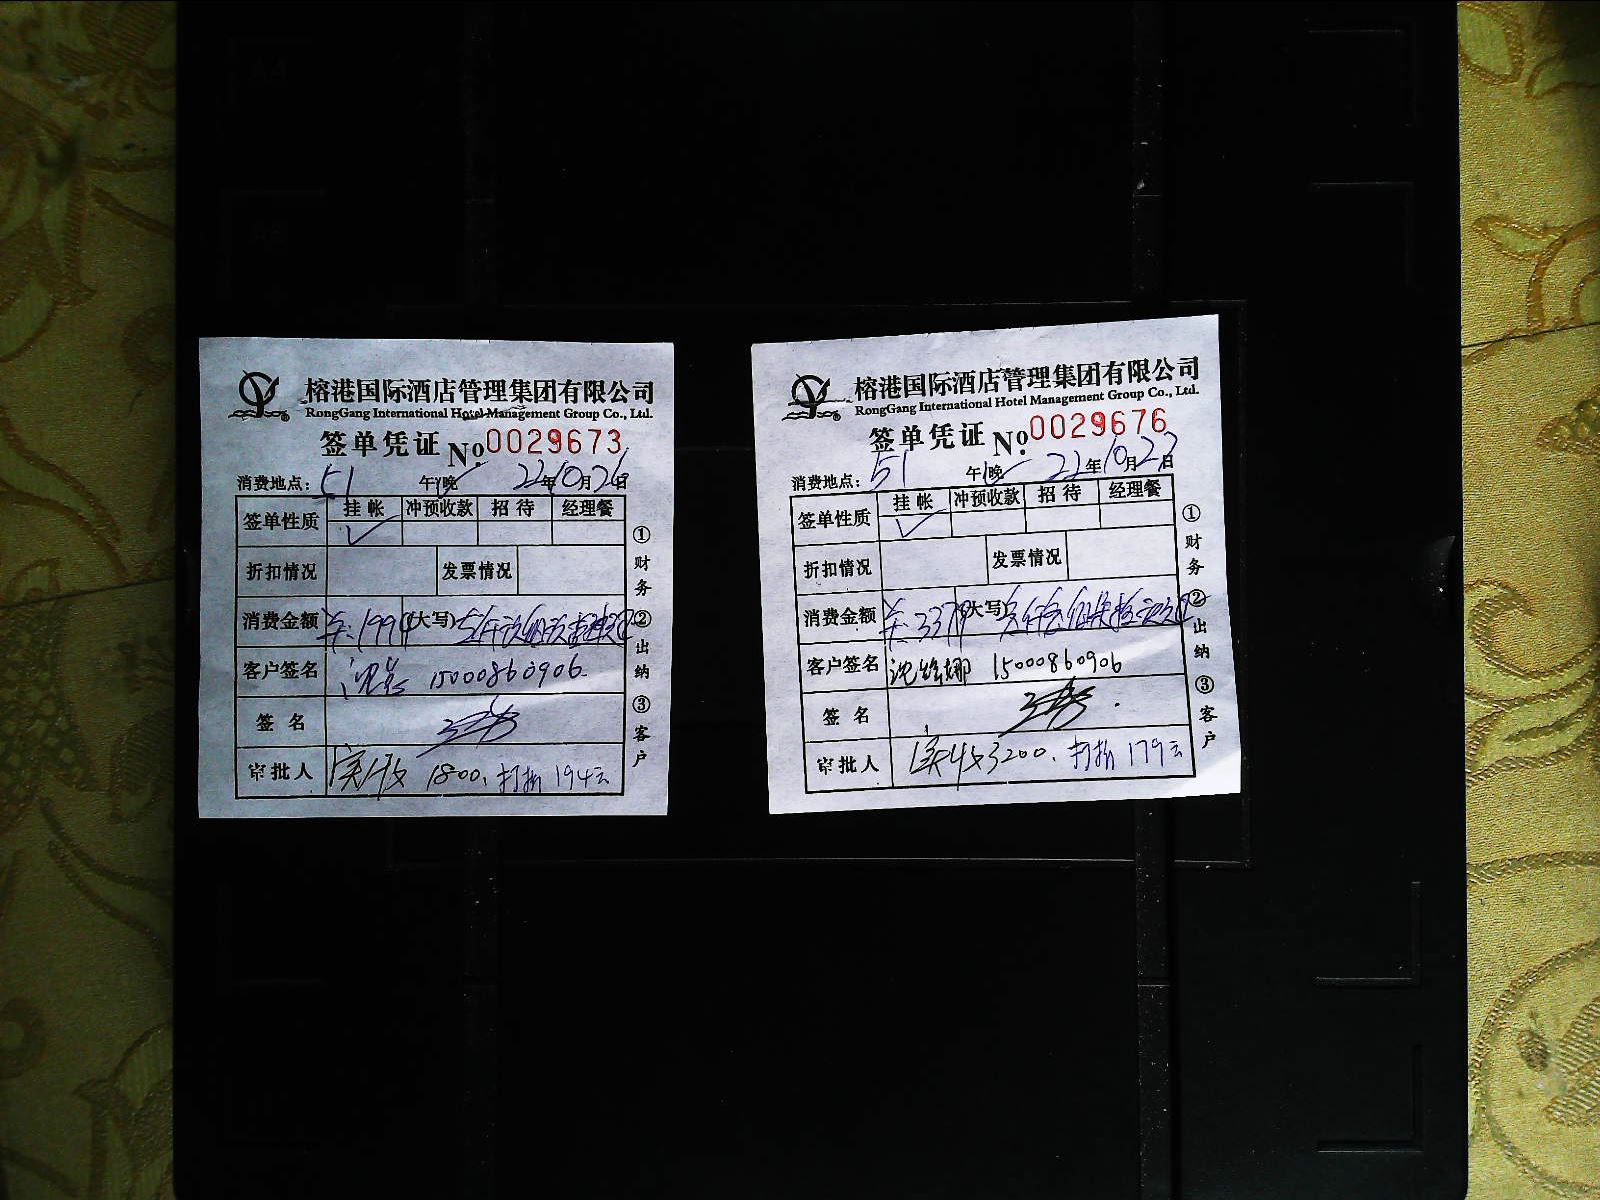 榕港国际酒店管理集团有限公司
RongGang International Hotel Management Group Co., Ltd.
签单凭证 No. 0029673
消费地点: 51 午 晚 22年10月26日
签单性质 挂帐 冲预收款 招待 经理餐
✓
折扣情况 发票情况
消费金额 1994 (大写)
客户签名 15000860906
签名
审批人 实收 1800. 打折 194元
①财务 ②出纳 ③客户
榕港国际酒店管理集团有限公司
RongGang International Hotel Management Group Co., Ltd.
签单凭证 No. 0029676
消费地点: 51 午 晚 22年10月27日
签单性质 挂帐 冲预收款 招待 经理餐
✓
折扣情况 发票情况
消费金额 3379 (大写)
客户签名 15000860906
签名
审批人 实收3200. 打折 179元
①财务 ②出纳 ③客户